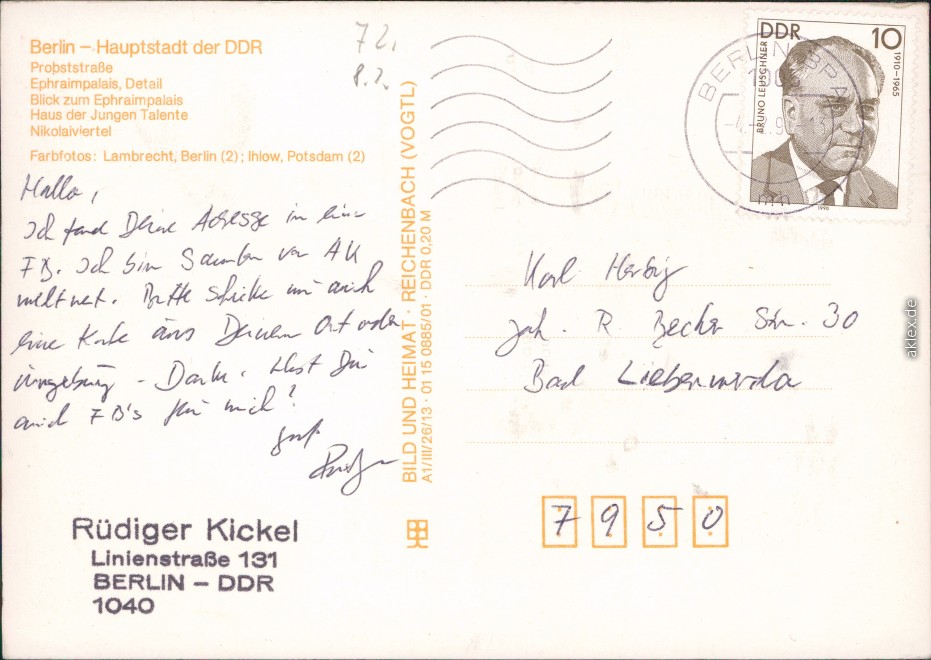 Berlin – Hauptstadt der DDR
Probststraße
Ephraimpalais, Detail
Blick zum Ephraimpalais
Haus der Jungen Talente
Nikolaiviertel
Farbfotos: Lambrecht, Berlin (2); Ihlow, Potsdam (2)
72,
8.2.
Hallo,
Ich fand Deine Adresse in ein
FB. Ich bin Sammler von AK
weltweit. Bitte schicke mir auch
eine Karte aus Deinem Ort oder
Umgebung – Danke. Hast Du
auch FB's für mich?
Gruß
BILD UND HEIMAT · REICHENBACH (VOGTL)
A1/III/26/13 · 01 15 0885/01 · DDR 0,20 M
Rüdiger Kickel
Linienstraße 131
BERLIN – DDR
1040
DDR 10
BRUNO LEUSCHNER
1910–1965
1990
BERLIN BPA
Karl Herbig
Joh. R. Becher Str. 30
Bad Liebenwerda
7950
aklex.de